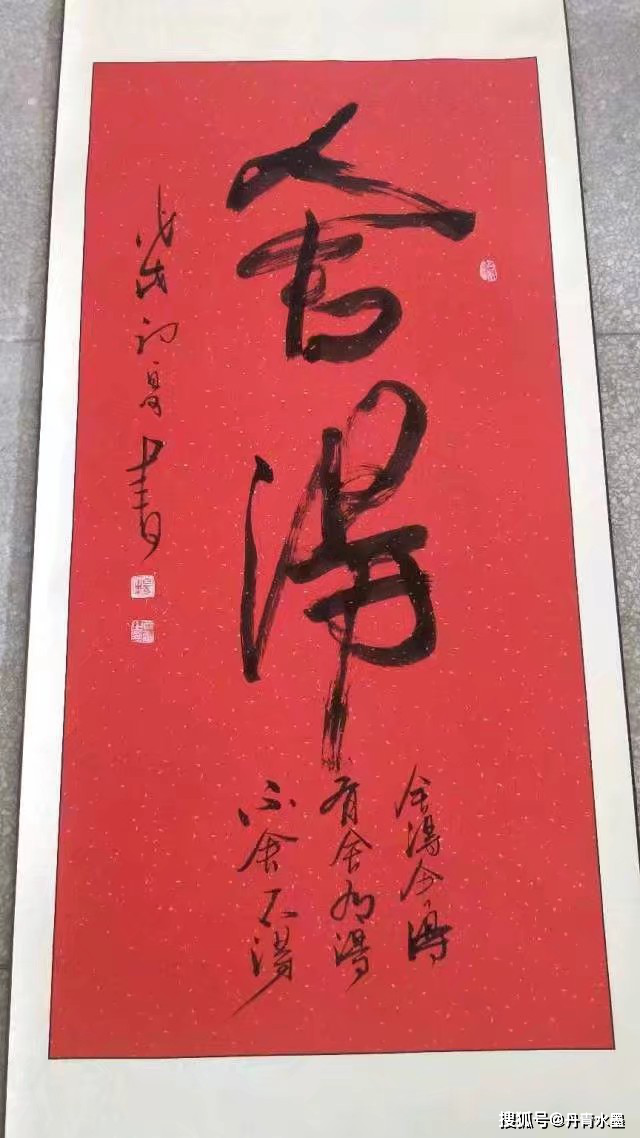 舍得
舍得舍得
有舍有得
不舍不得
戊戌初夏
书
搜狐号@丹青水墨